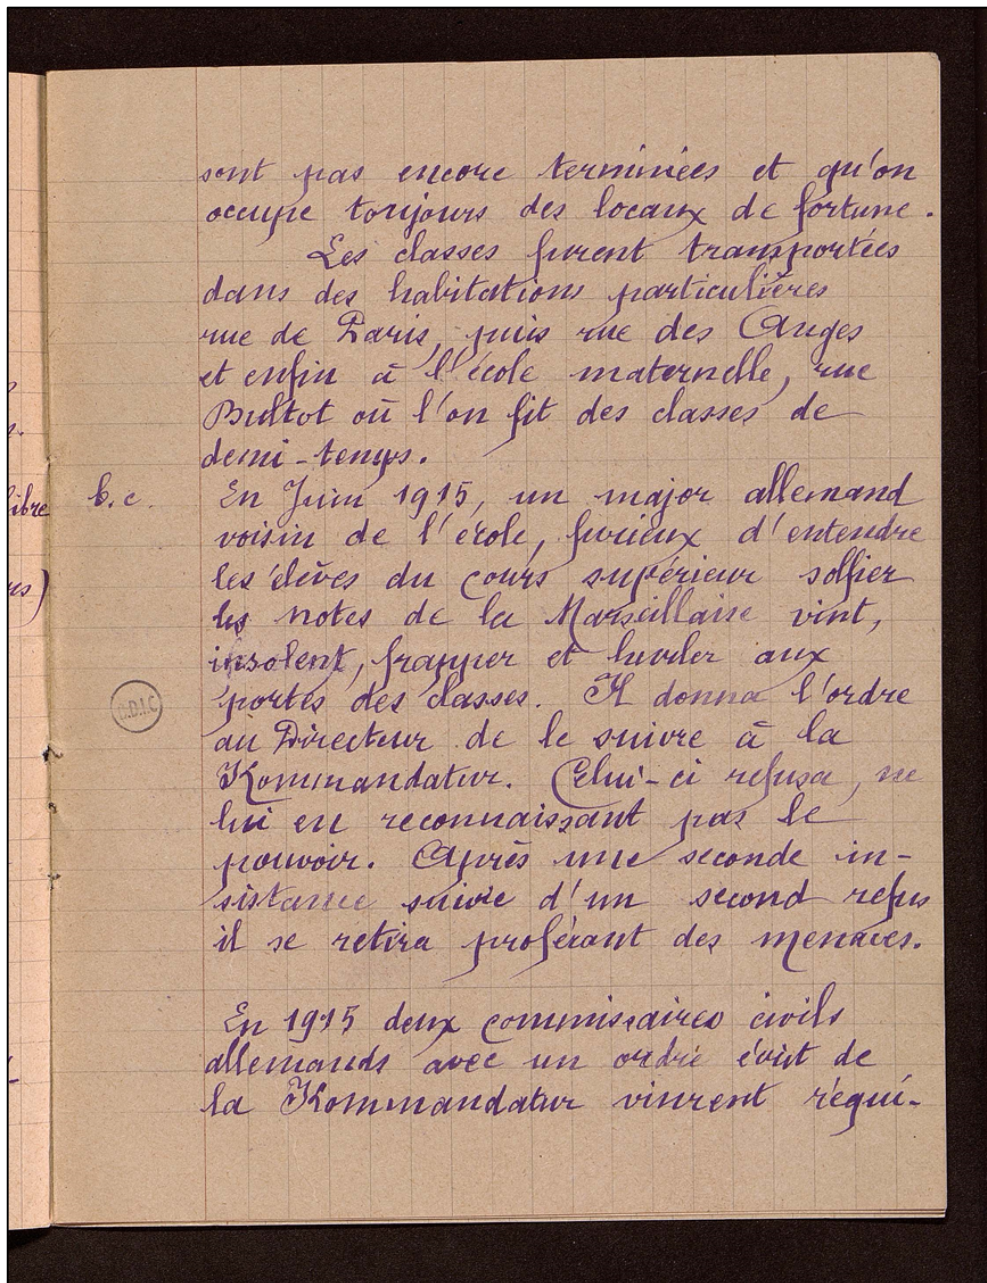 sont pas encore terminées et qu'on
occupe toujours des locaux de fortune.
Les classes furent transportées
dans des habitations particulières
rue de Paris, puis rue des Anges
et enfin à l'école maternelle, rue
Bultot où l'on fit des classes de
demi-temps.
b.c. En Juin 1915, un major allemand
voisin de l'école, furieux d'entendre
les élèves du cours supérieur solfier
les notes de la Marseillaise vint,
insolent, frapper et hurler aux
portes des classes. Il donna l'ordre
au Directeur de le suivre à la
Kommandatur. Celui-ci refusa, ne
lui en reconnaissant pas le
pouvoir. Après une seconde in-
sistance suivie d'un second refus
il se retira proférant des menaces.
En 1915 deux commissaires civils
allemands avec un ordre écrit de
la Kommandatur vinrent réqui-
ibre
rs)
B.D.I.C